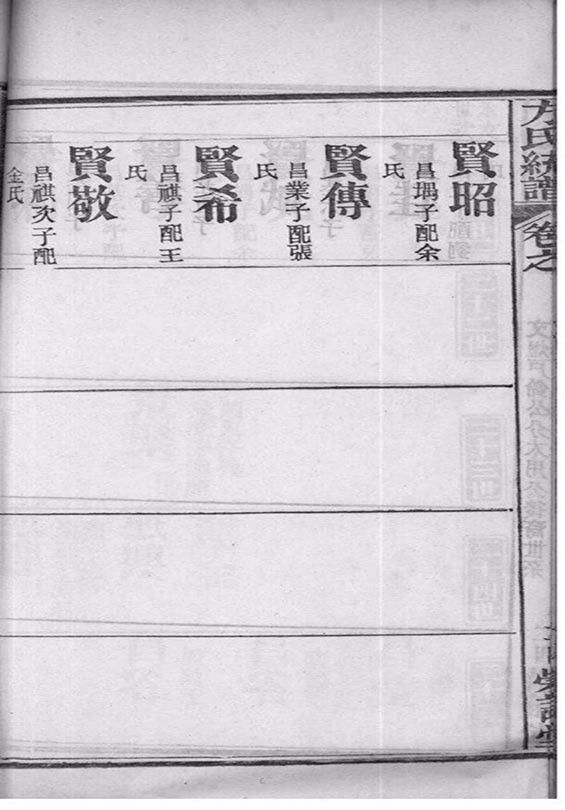 方氏統譜
卷之
賢昭
昌堣子配余
氏
賢傳
昌業子配張
氏
賢希
昌祺子配王
氏
賢敬
昌祺次子配
金氏